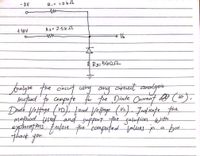 -5V R₁ = 1.2kΩ
+10V R₂ = 2.5kΩ
Vo
R₃ = 
Analyze the circuit using any circuit analysis
method to compute for the Diode Current (
Diode Voltage ( ) and Voltage (Vo). Indicate the
method used and support the solution with
explanations. Enclose the computed values in a box.
Thank you